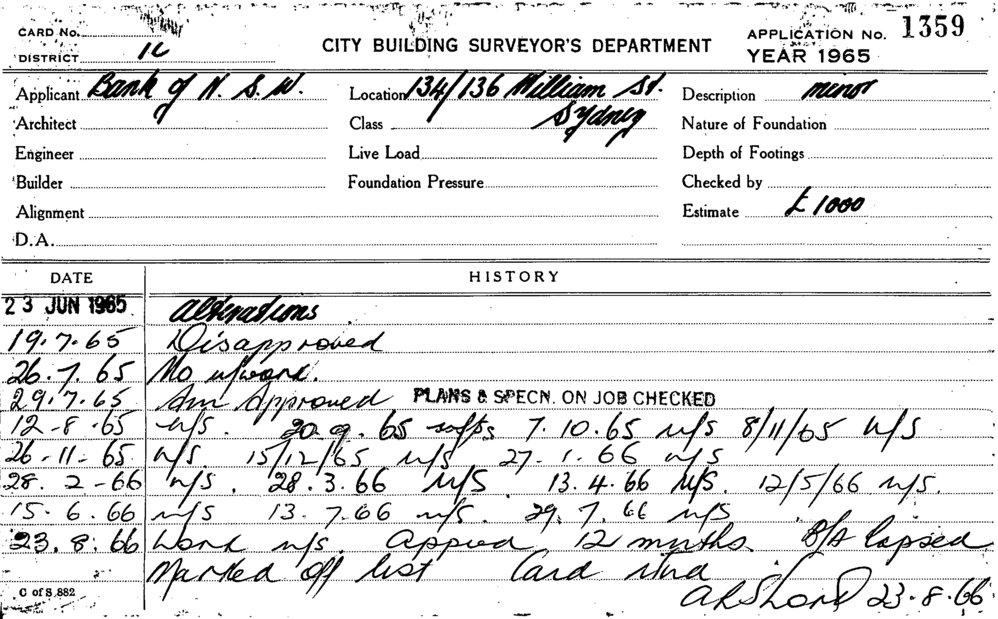 CARD No.
DISTRICT 1C
CITY BUILDING SURVEYOR'S DEPARTMENT
APPLICATION No. 1359
YEAR 1965
Applicant Bank of N. S. W. Location 134/136 William St. Sydney Description minor
Architect Class Nature of Foundation
Engineer Live Load Depth of Footings
Builder Foundation Pressure Checked by
Alignment Estimate £1000
D.A.
DATE HISTORY
23 JUN 1965 Alterations
19.7.65 Disapproved
26.7.65 No
29.7.65 Approved PLANS & SPECN. ON JOB CHECKED
12-8-65 n/s. 20.9.65 n/s 7.10.65 n/s 8/11/65 n/s
26-11-65 n/s 15/12/65 n/s 27.1.66 n/s
28.2-66 n/s. 28.3.66 n/s. 13.4.66 n/s. 12/5/66 n/s.
15.6.66 n/s 13.7.66 n/s. 29.7.66 n/s
23.8.66 Work n/s. 12 months. B/A lapsed
Marked off list Card
23.8.66
C of S 882